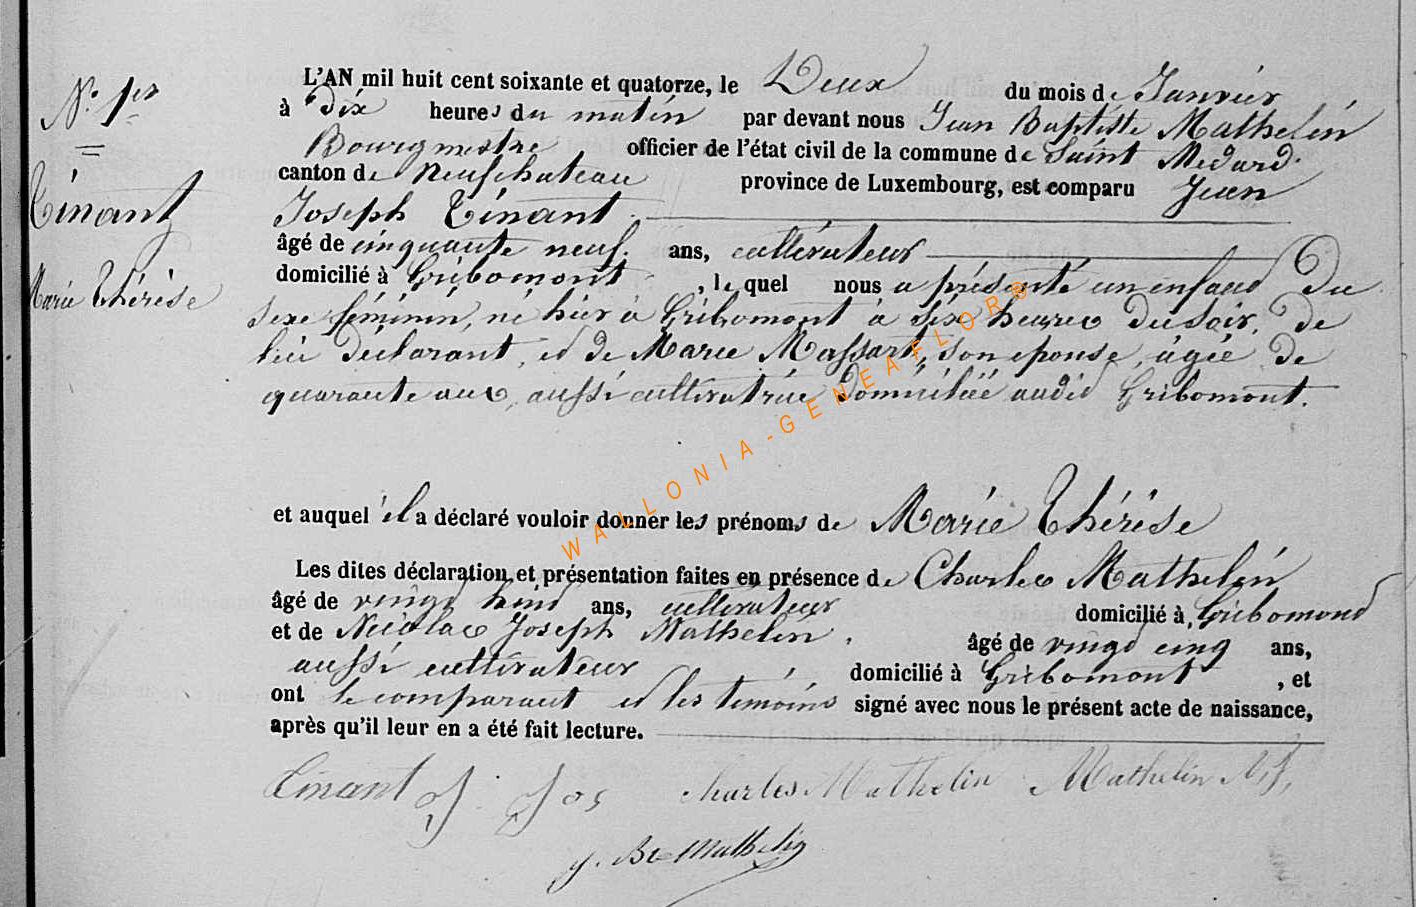 N.º 1er
Tinant
Marie Thérèse
L'AN mil huit cent soixante et quatorze, le Deux du mois de Janvier
à Dix heures du matin par devant nous Jean Baptiste Mathelin
Bourgmestre officier de l'état civil de la commune de Saint Medard
canton de Neufchateau province de Luxembourg, est comparu Jean
Joseph Tinant
âgé de cinquante neuf ans, cultivateur
domicilié à Gribomont, lequel nous a présenté un enfant Du
sexe féminin, né hier à Gribomont à six heures du soir, De
lui déclarant, et De Marie Massart, son epouse, âgée De
quarante ans, aussi cultivatrice Domiciliée audit Gribomont.
et auquel il a déclaré vouloir donner les prénoms de Marie Thérèse
Les dites déclaration et présentation faites en présence de Charles Mathelin
âgé de vingt huit ans, cultivateur domicilié à Gribomont
et de Nicolas Joseph Mathelin, âgé de vingt cinq ans,
aussi cultivateur domicilié à Gribomont, et
ont le comparant et les témoins signé avec nous le présent acte de naissance,
après qu'il leur en a été fait lecture.
Tinant J. Jos Charles Mathelin Mathelin N.J.
J. Bte Mathelin
WALLONIA-GENEAFLOR®